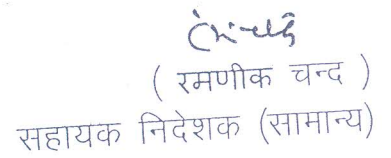 ( रमणीक चन्द )
सहायक निदेशक (सामान्य)